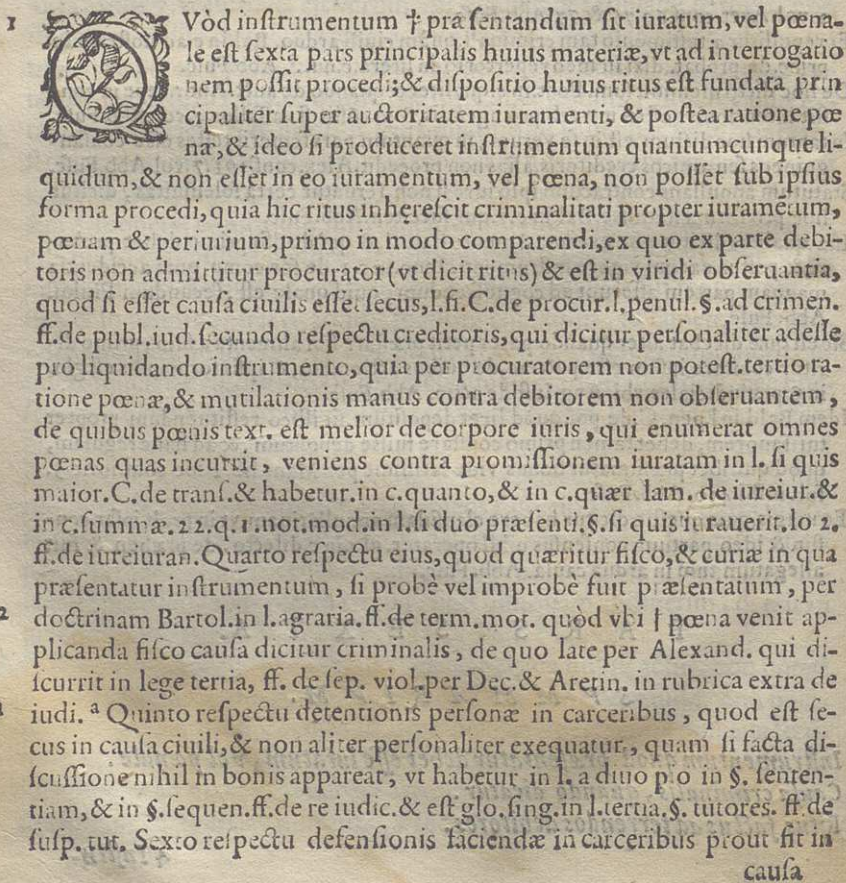 1 QVòd inſtrumentum † præſentandum ſit iuratum, vel pœna-
le eſt ſexta pars principalis huius materiæ, vt ad interrogatio
nem poſſit procedi; & diſpoſitio huius ritus eſt fundata prin
cipaliter ſuper auctoritatem iuramenti, & poſtea ratione pœ
næ, & ideo ſi produceret inſtrumentum quantumcunque li-
quidum, & non eſſet in eo iuramentum, vel pœna, non poſſet ſub ipſius
forma procedi, quia hic ritus inhęreſcit criminalitati propter iuramẽtum,
pœnam & periurium, primo in modo comparendi, ex quo ex parte debi-
toris non admittitur procurator (vt dicit ritus) & eſt in viridi obſeruantia,
quod ſi eſſet cauſa ciuilis eſſet ſecus, l. fi. C. de procur. l. penul. §. ad crimen.
ff. de publ. iud. ſecundo reſpectu creditoris, qui dicitur perſonaliter adeſſe
pro liquidando inſtrumento, quia per procuratorem non poteſt. tertio ra-
tione pœnæ, & mutilationis manus contra debitorem non obſeruantem,
de quibus pœnis text. eſt melior de corpore iuris, qui enumerat omnes
pœnas quas incurrit, veniens contra promiſſionem iuratam in l. ſi quis
maior. C. de tranſ. & habetur. in c. quanto, & in c. quær lam. de iureiur. &
in c. ſummæ. 22. q. 1. not. mod. in l. ſi duo præſenti. §. ſi quis iurauerit. lo 2.
ff. de iureiuran. Quarto reſpectu eius, quod quæritur fiſco, & curiæ in qua
præſentatur inſtrumentum, ſi probè vel improbè fuit præſentatum, per
2 doctrinam Bartol. in l. agraria. ff. de term. mot. quòd vbi † pœna venit ap-
plicanda fiſco cauſa dicitur criminalis, de quo late per Alexand. qui di-
ſcurrit in lege tertia, ff. de ſep. viol. per Dec. & Aretin. in rubrica extra de
iudi. ª Quinto reſpectu detentionis perſonæ in carceribus, quod eſt ſe-
cus in cauſa ciuili, & non aliter perſonaliter exequatur, quam ſi facta di-
ſcuſſione nihil in bonis appareat, vt habetur in l. a diuo pio in §. ſenten-
tiam, & in §. ſequen. ff. de re iudic. & eſt glo. ſing. in l. tertia. §. tutores. ff de
ſuſp. tut. Sexto reſpectu defenſionis faciendæ in carceribus prout fit in
cauſa